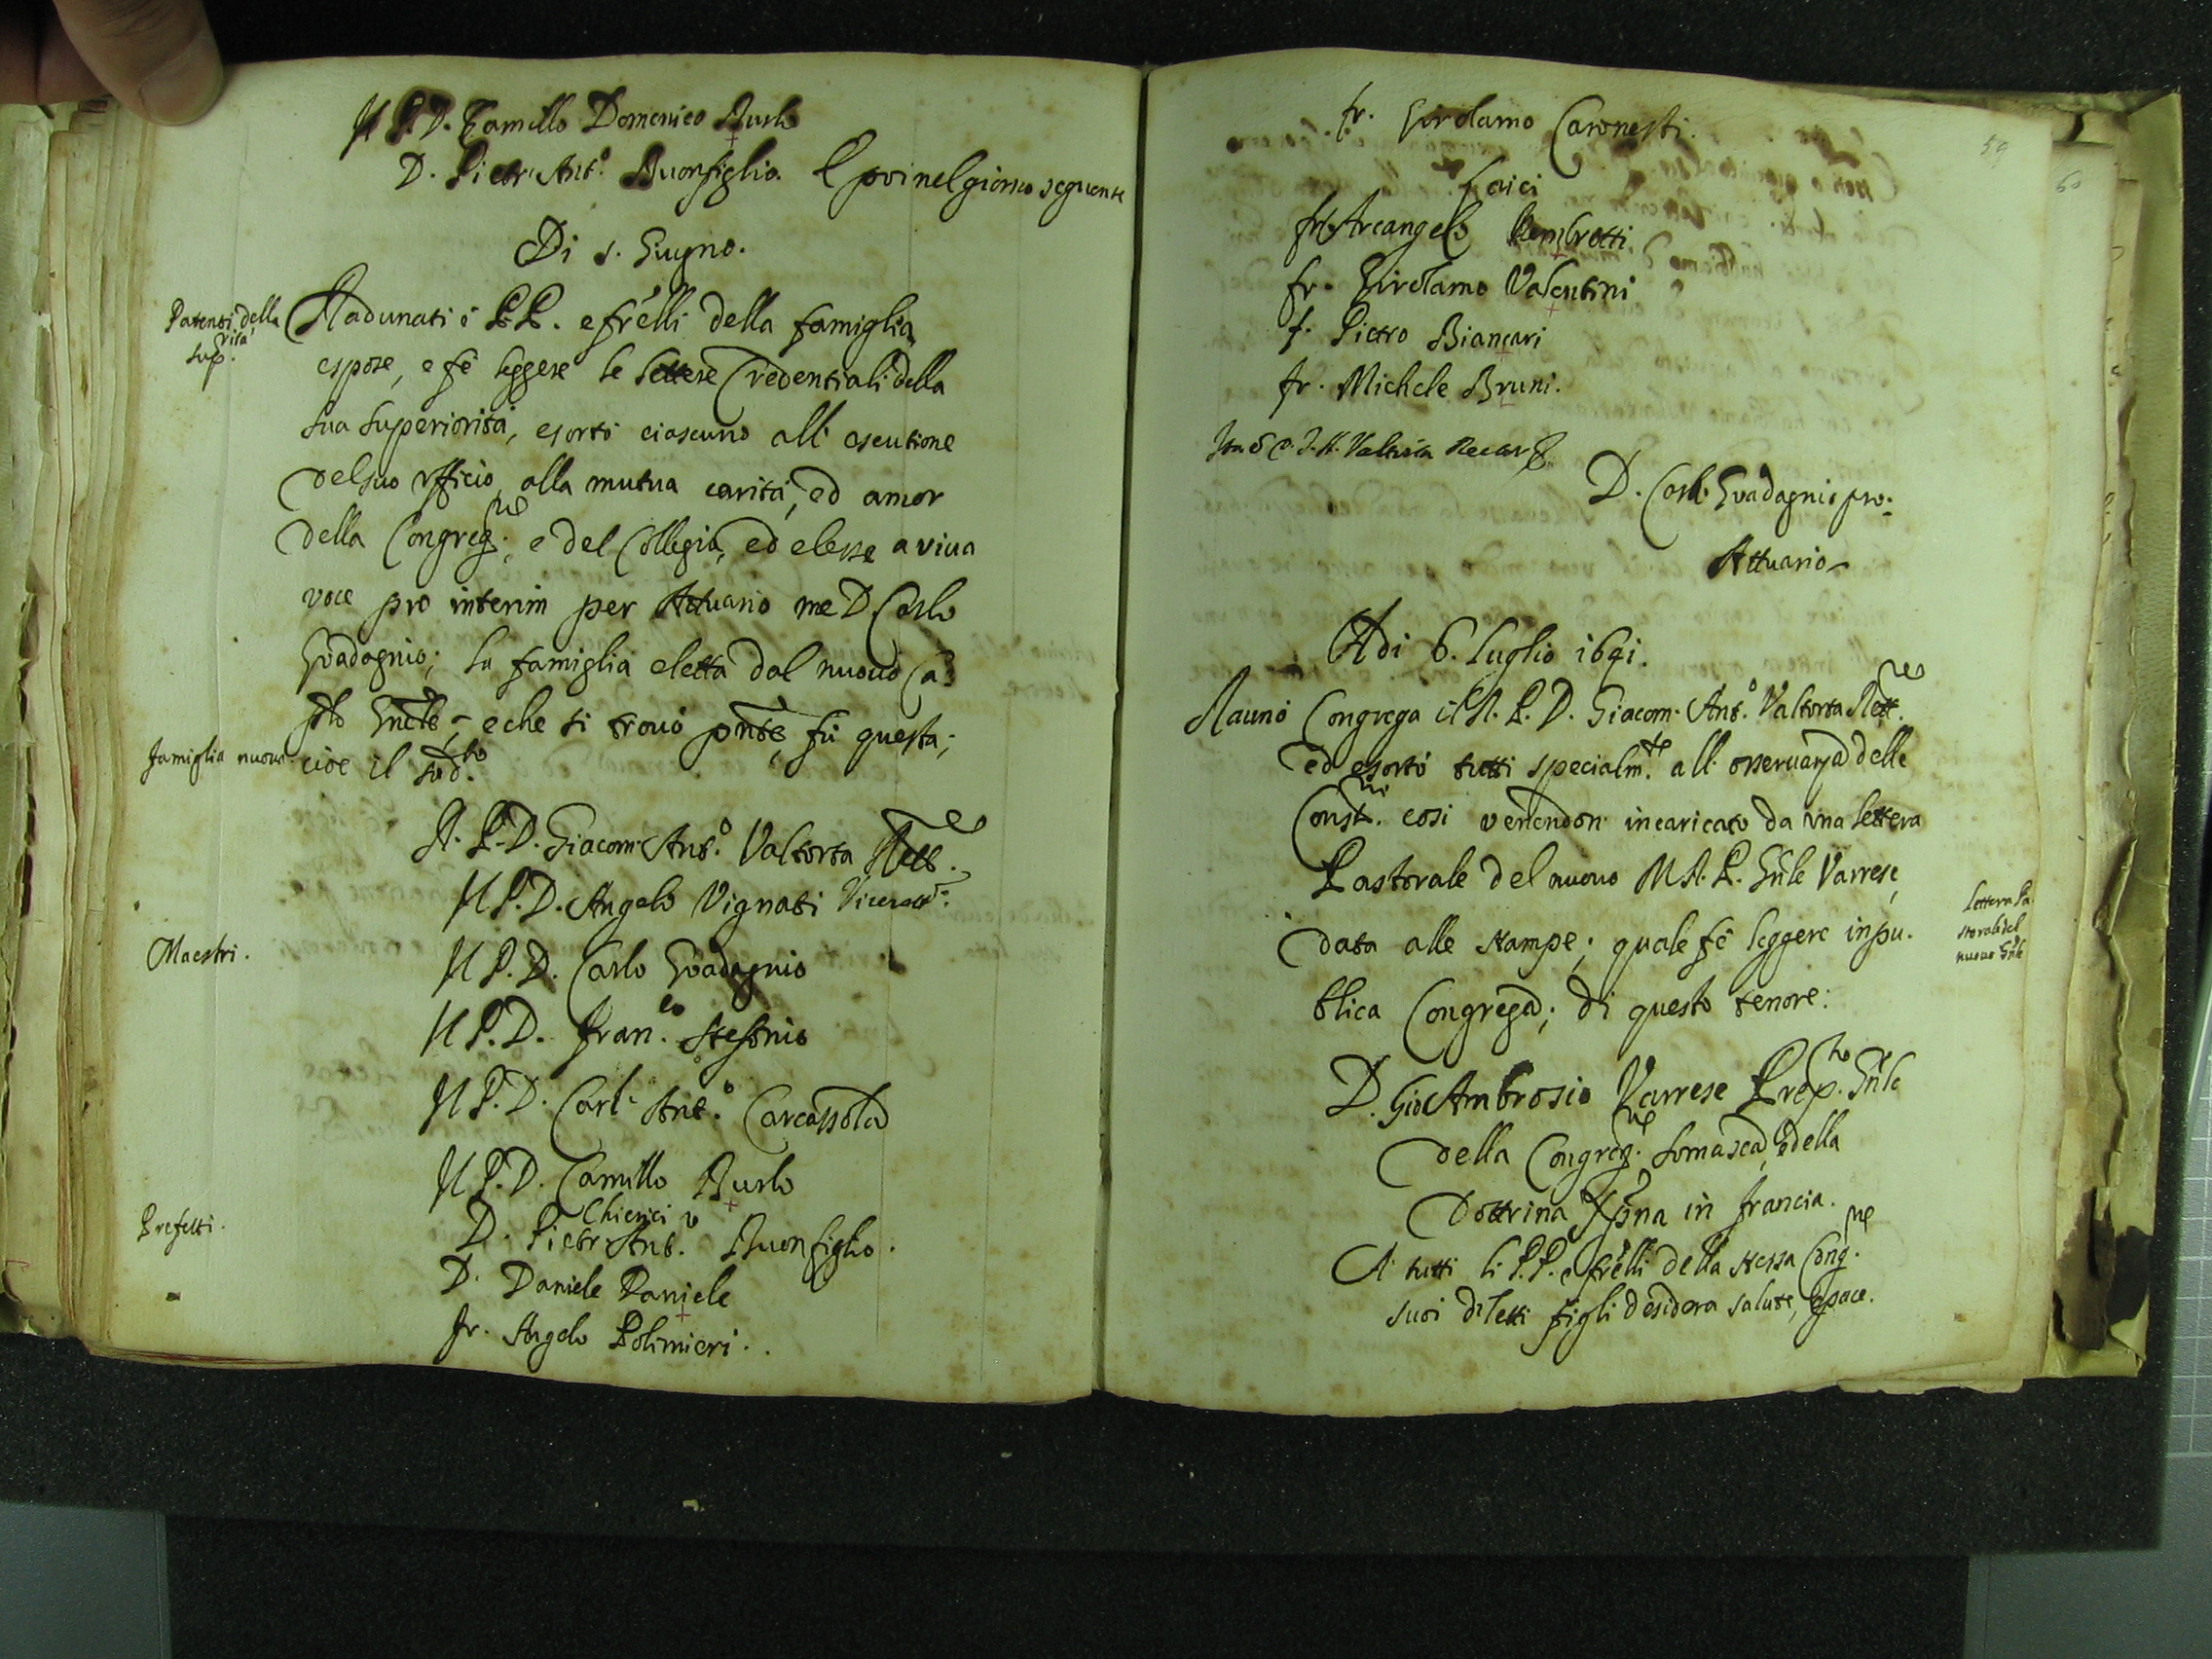 Il P. D. Camillo Domenico Burlo
D. Pietr' Ant.o Buonfiglio. E poi nel giorno seguente
Di 1. Giugno.
Patenti della
Sup.rità
Radunati i P.P. e frēlli della famiglia
espose, e fè leggere le lettere Credentiali della
sua superiorità, esortò ciascuno all' esecutione
del suo ufficio, alla mutua carità, ed amor
della Congreg.ne, e del Collegio, ed elesse a viva
voce pro interim per Attuario me D Carlo
Guadagnio; La famiglia eletta dal nuovo Ca=
plo Gnāle, e che si trovò pnte, fù questa;
famiglia nuova
cioè il sud.to
R. P. D. Giacom' Ant.o Valtorta Rett.re
Il P. D. Angelo Vignati Vicerett.
Maestri.
Il P. D. Carlo Guadagnio
Il P. D. Fran.co Stefonio
Il P. D. Carl' Ant.o Carcassola
Il P. D. Camillo Burlo
Chierici
Prefetti.
D. Pietr' Ant.o Buonfiglio.
D. Daniele Daniele
fr. Angelo Polimieri.
59
60
fr. Girolamo Caronesti.
Laici
fr. Arcangelo Rembrotti
fr. Girolamo Valentini
f. Pietro Biancari
fr. Michele Bruni.
D. J. A. Valtorta Rector
D. Carlo Guadagnio pro:
Attuario
Adi 6. Luglio 1691.
Raunò Congrega il R. P. D. Giacom' Ant.o Valtorta Rett.re
ed esortò tutti specialm.te all' osservanza delle
Const.ni così venendon' incaricato da una lettera
Pastorale del nuovo M R. P. Gnle Varrese,
data alle stampe; quale fè leggere in pu.
Lettera Pa
storale del
nuovo Gnle
blica Congrega; di questo tenore:
D. Gio Ambrosio Varrese Prep.to Gnle
della Congreg.ne Somasca, e della
Dottrina Xpna in francia.
A tutti li P.P. e frēlli della stessa Cong.ne
suoi diletti figli desidera salute, e pace.